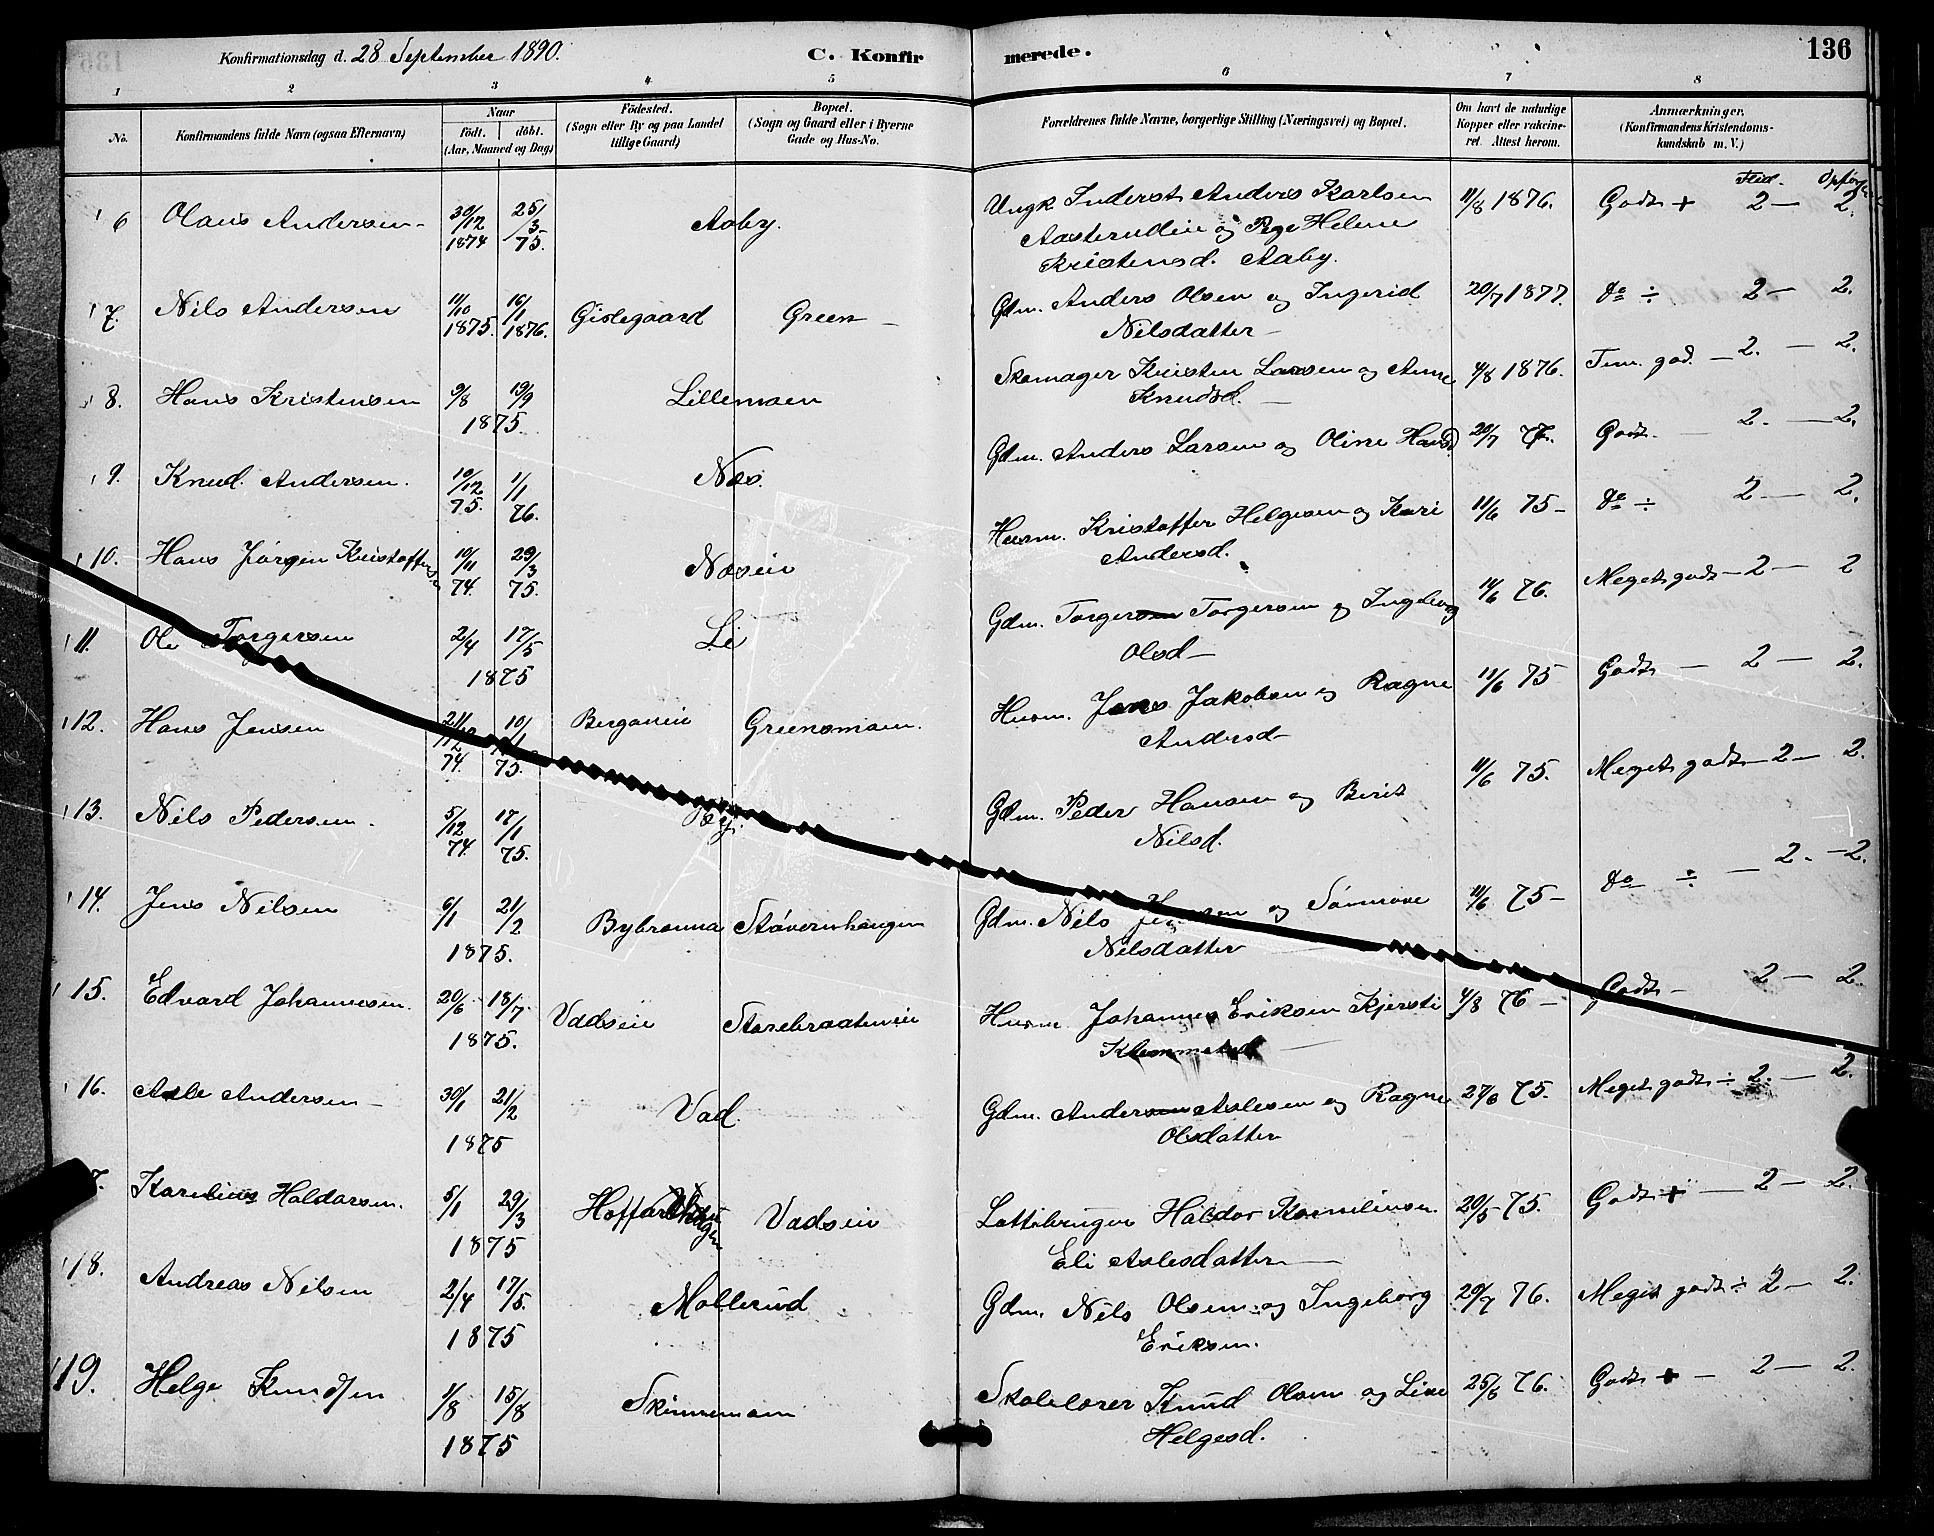 Konfirmationsdag d. 28 September 1890.
C. Konfirmerede.
136
1 2 3 4 5 6 7 8
No.
Konfirmandens fulde Navn (ogsaa Efternavn)
Naar
født. døbt.
(Aar, Maaned og Dag)
Fødested.
(Sogn eller By og paa Landet
tillige Gaard)
Bopæl.
(Sogn og Gaard eller i Byerne
Gade og Hus-No.
Forældrenes fulde Navne, borgerlige Stilling (Næringsvei) og Bopæl.
Om havt de naturlige
Kopper eller vakcine-
ret. Attest herom.
Anmærkninger,
(Konfirmandens Kristendoms-
kundskab m. V.)
Flid.
6 Olaus Andersen 30/12 1874 25/3 75. Aaby. Ungk Inderst Anders Karlsen 11/8 1876. Godt + 2 — 2.
Aasterudeie og Pige Helene
Kristensd. Aaby.
7. Nils Andersen 11/10 1875. 16/1 1876. Gislegaard Green Gdm. Anders Olsen og Ingerid 20/7 1877. do ÷ 2 — 2.
Nilsdatter
8. Hans Kristensen 9/8 19/9 1875. Lillemoen Skomager Kristen Larsen og Anne 4/8 1876. Tem. god. — 2. — 2.
Knudsd.
9. Knud Andersen. 10/12 75. 1/1 76. Næs. Gdm. Anders Larsen og Oline Hansd 20/7 77. Godt. — 2. — 2.
10. Hans Jørgen Kristoffersen 10/11 74. 29/3 75. Næseie Husm. Kristoffer Helgesen og Kari 11/6 75 — do ÷ 2 — 2.
Andersd.
11. Ole Torgersen 2/4 17/5 1875 Li Gdm. Torger Torgersen og Ingeborg 14/6 76. Meget godt — 2 — 2
Olsd
12. Hans Jensen 21/12 74. 10/1 75. Berganeie Greensmoen. Husm. Jens Jakobsen og Ragne 11/6 75 Godt — 2 — 2.
Andersd
13. Nils Pedersen. 5/12 74. 17/1 75. Gdm. Peder Hansen og Berit 11/6 75. Meget godt — 2 — 2.
Nilsd.
14. Jens Nilsen 6/1 21/2 1875. Bybraana Støvernhaugen Gdm. Nils Jensen og Sønnøve 11/6 75 — do ÷ — 2. — 2.
Nilsdatter
15. Edvard Johannesen. 20/6 18/7 1875. Vadseie Storebraateneie Husm. Johannes Eriksen Kjersti 4/8 76 — Godt — 2 — 2.
16. Asle Andersen 30/1 21/2 1875 Vad. Gdm. Anders Aslesen og Ragne 27/6 75. Meget godt ÷ 2. — 2.
Olsdatter
7. Karelius Haldorsen. 5/1 29/3 1875 Vadseie Haldor 20/5 75. Godt + — 2 — 2.
Eli Aslesdatter
18. Andreas Nilsen 2/4 17/5. 1875 Mollerud Gdm. Nils Olsen og Ingeborg 20/7 76. Meget godt ÷ 2 — 2.
Eriksen.
19. Helge Knudsen 1/8 15/8 1875 Skinnemoen Skolelærer Knud Olsen og Live 25/6 76. Godt + — 2 — 2.
Helgesd.